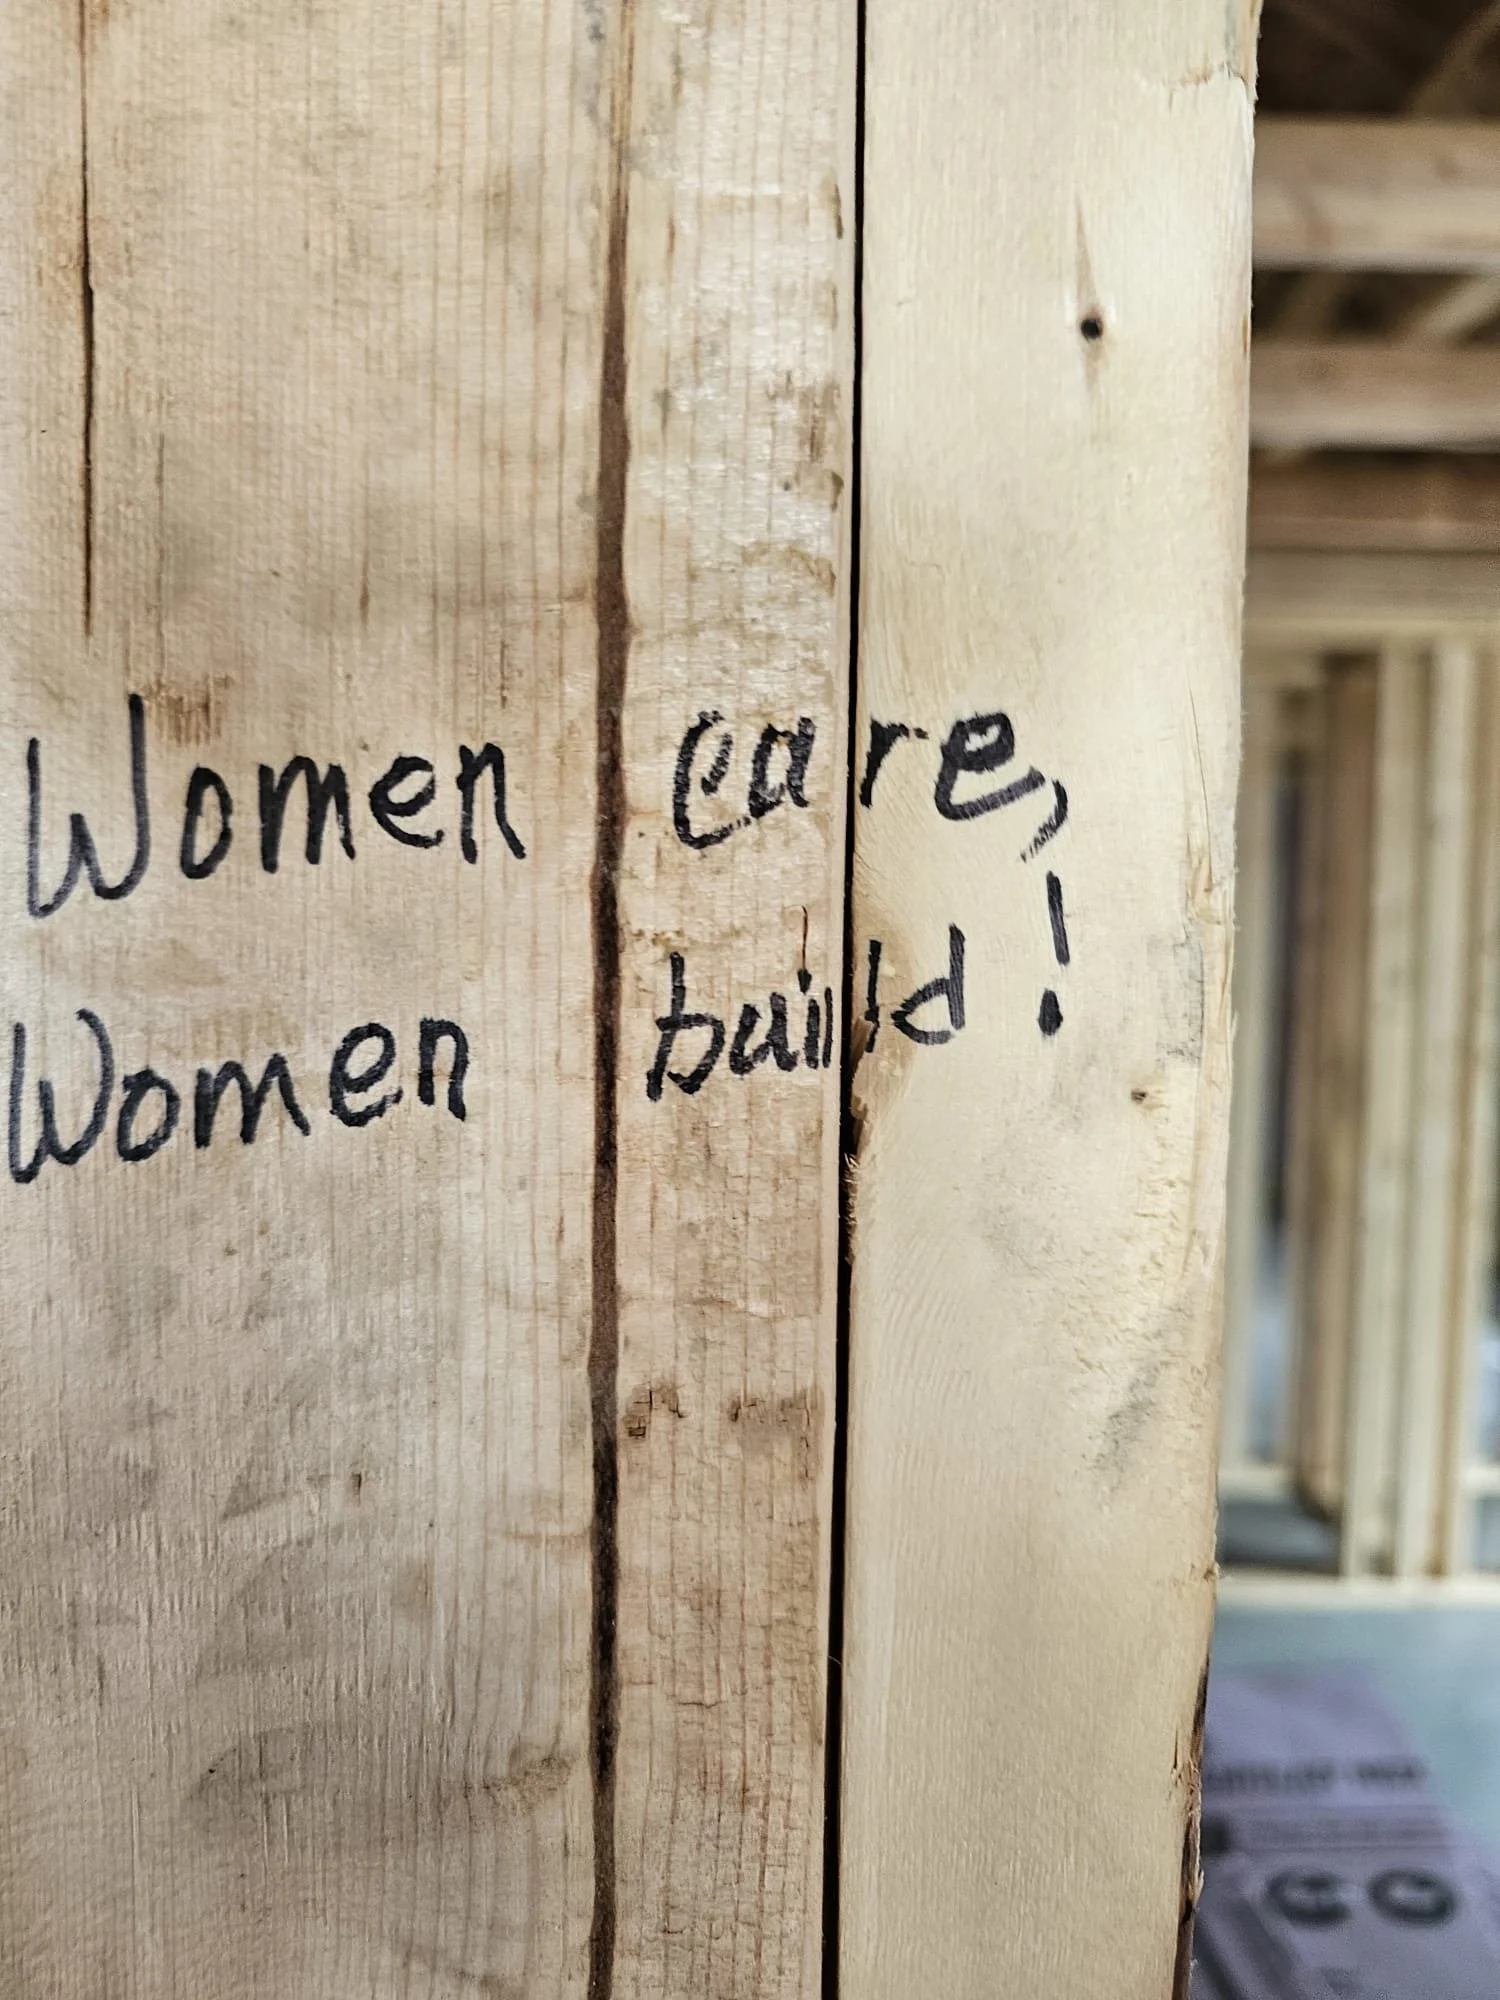 Women care,
Women build!